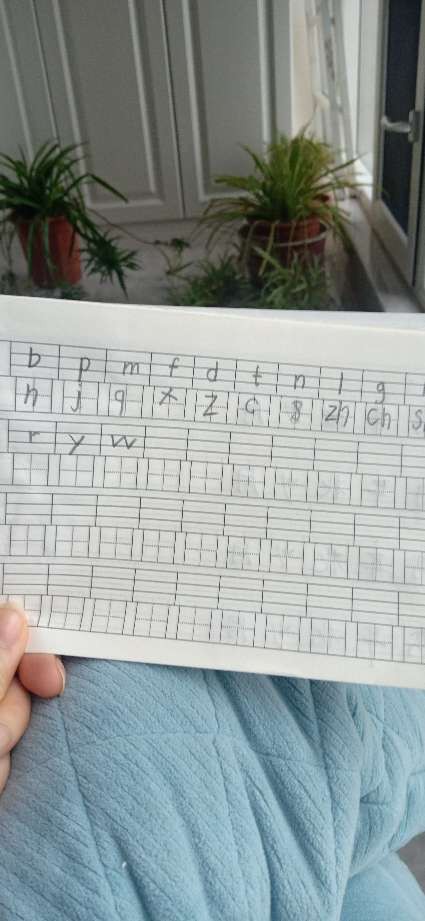 b p m f d t n l g
h j q x z c s zh ch
r y w